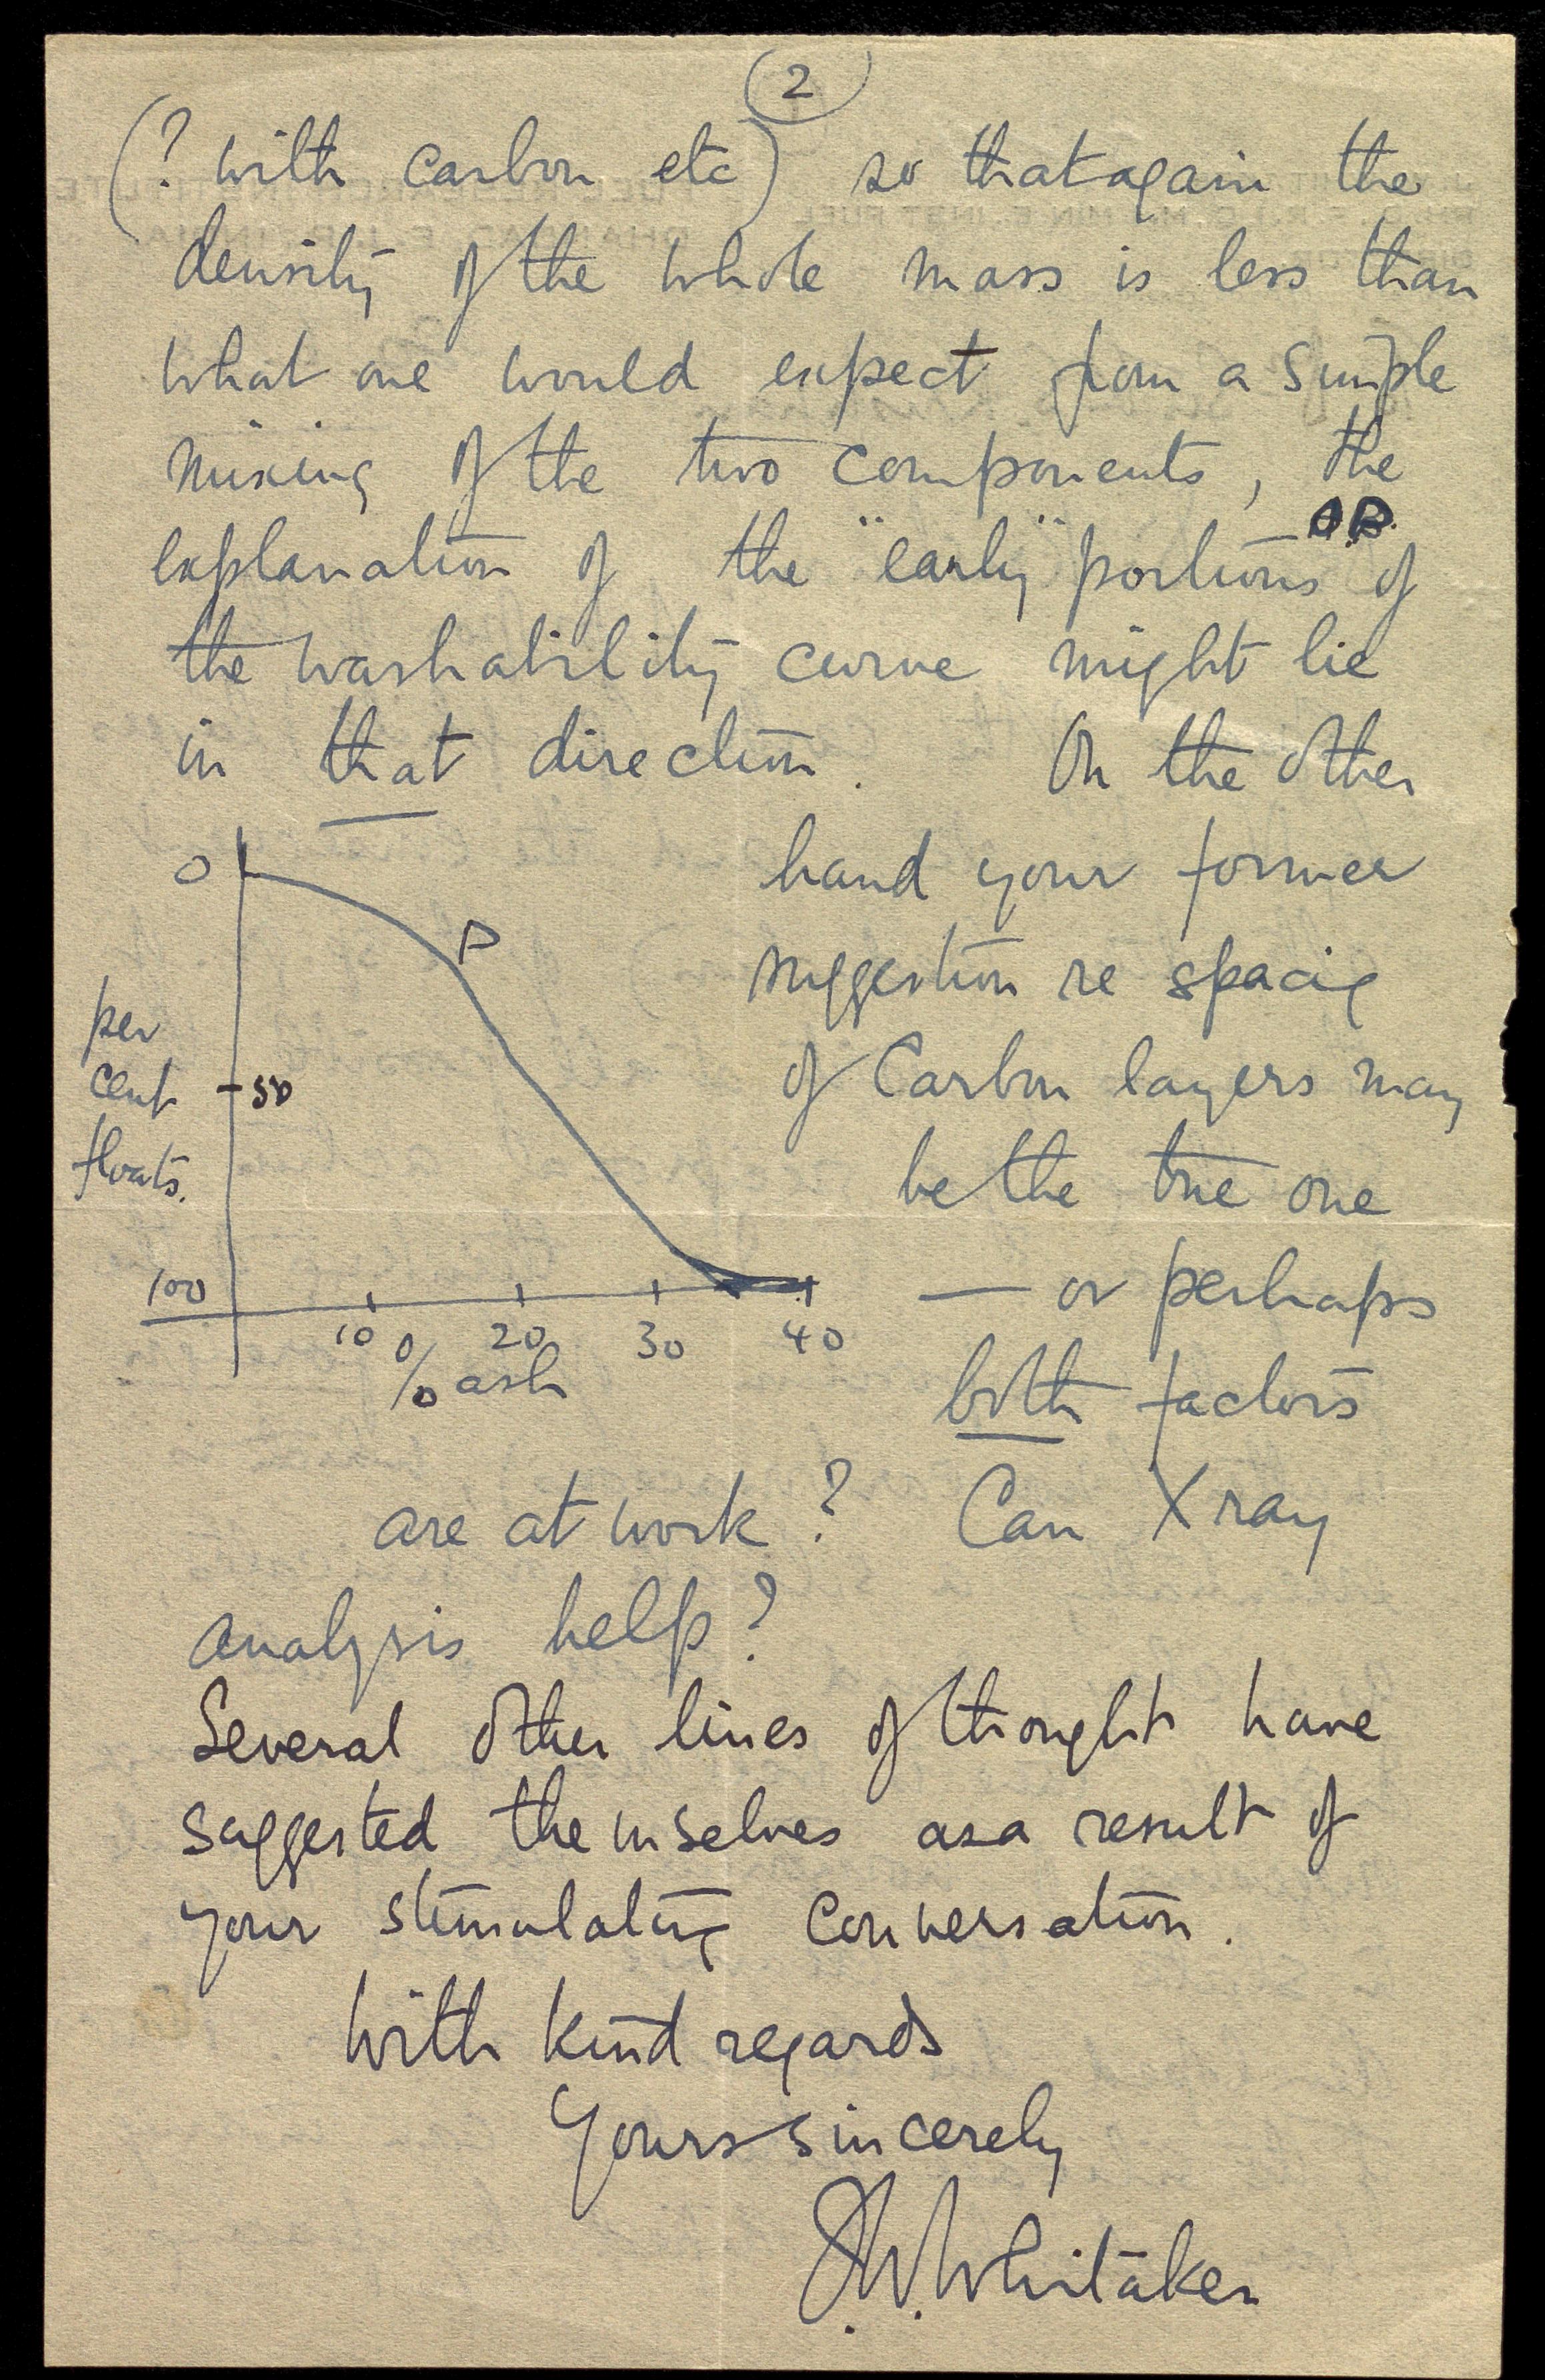 2
(? with carbon etc) so that again the
density of the whole mass is less than
what one would expect from a simple
mixing of the two components, the
explanation of the "early" portions O.P. of
the washability curve might lie
in that direction. On the other
hand your former
suggestion re spacing
of Carbon layers may
be the true one
— or perhaps
both factors
are at work? Can X ray
analysis help?
O
P
per
cent
floats.
50
100
10 20 30 40
% ash
Several other lines of thought have
suggested themselves as a result of
your stimulating conversation.
With kind regards
Yours sincerely
J.W. Whitaker